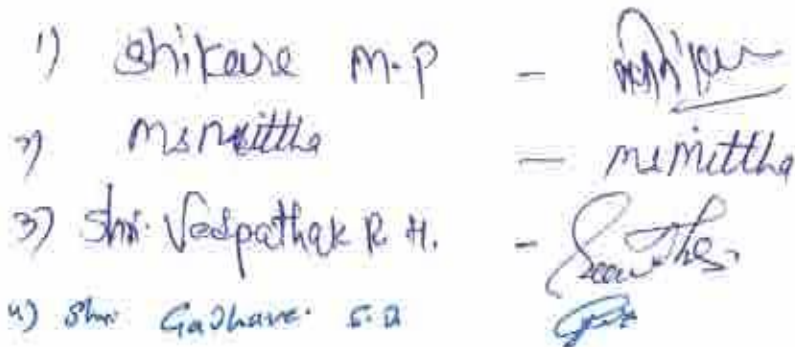 1) Shikare M.P -
2) MsMittha - MsMittha
3) Shri. Vedpathak R. H. -
4) Shri Gadhave. S.D